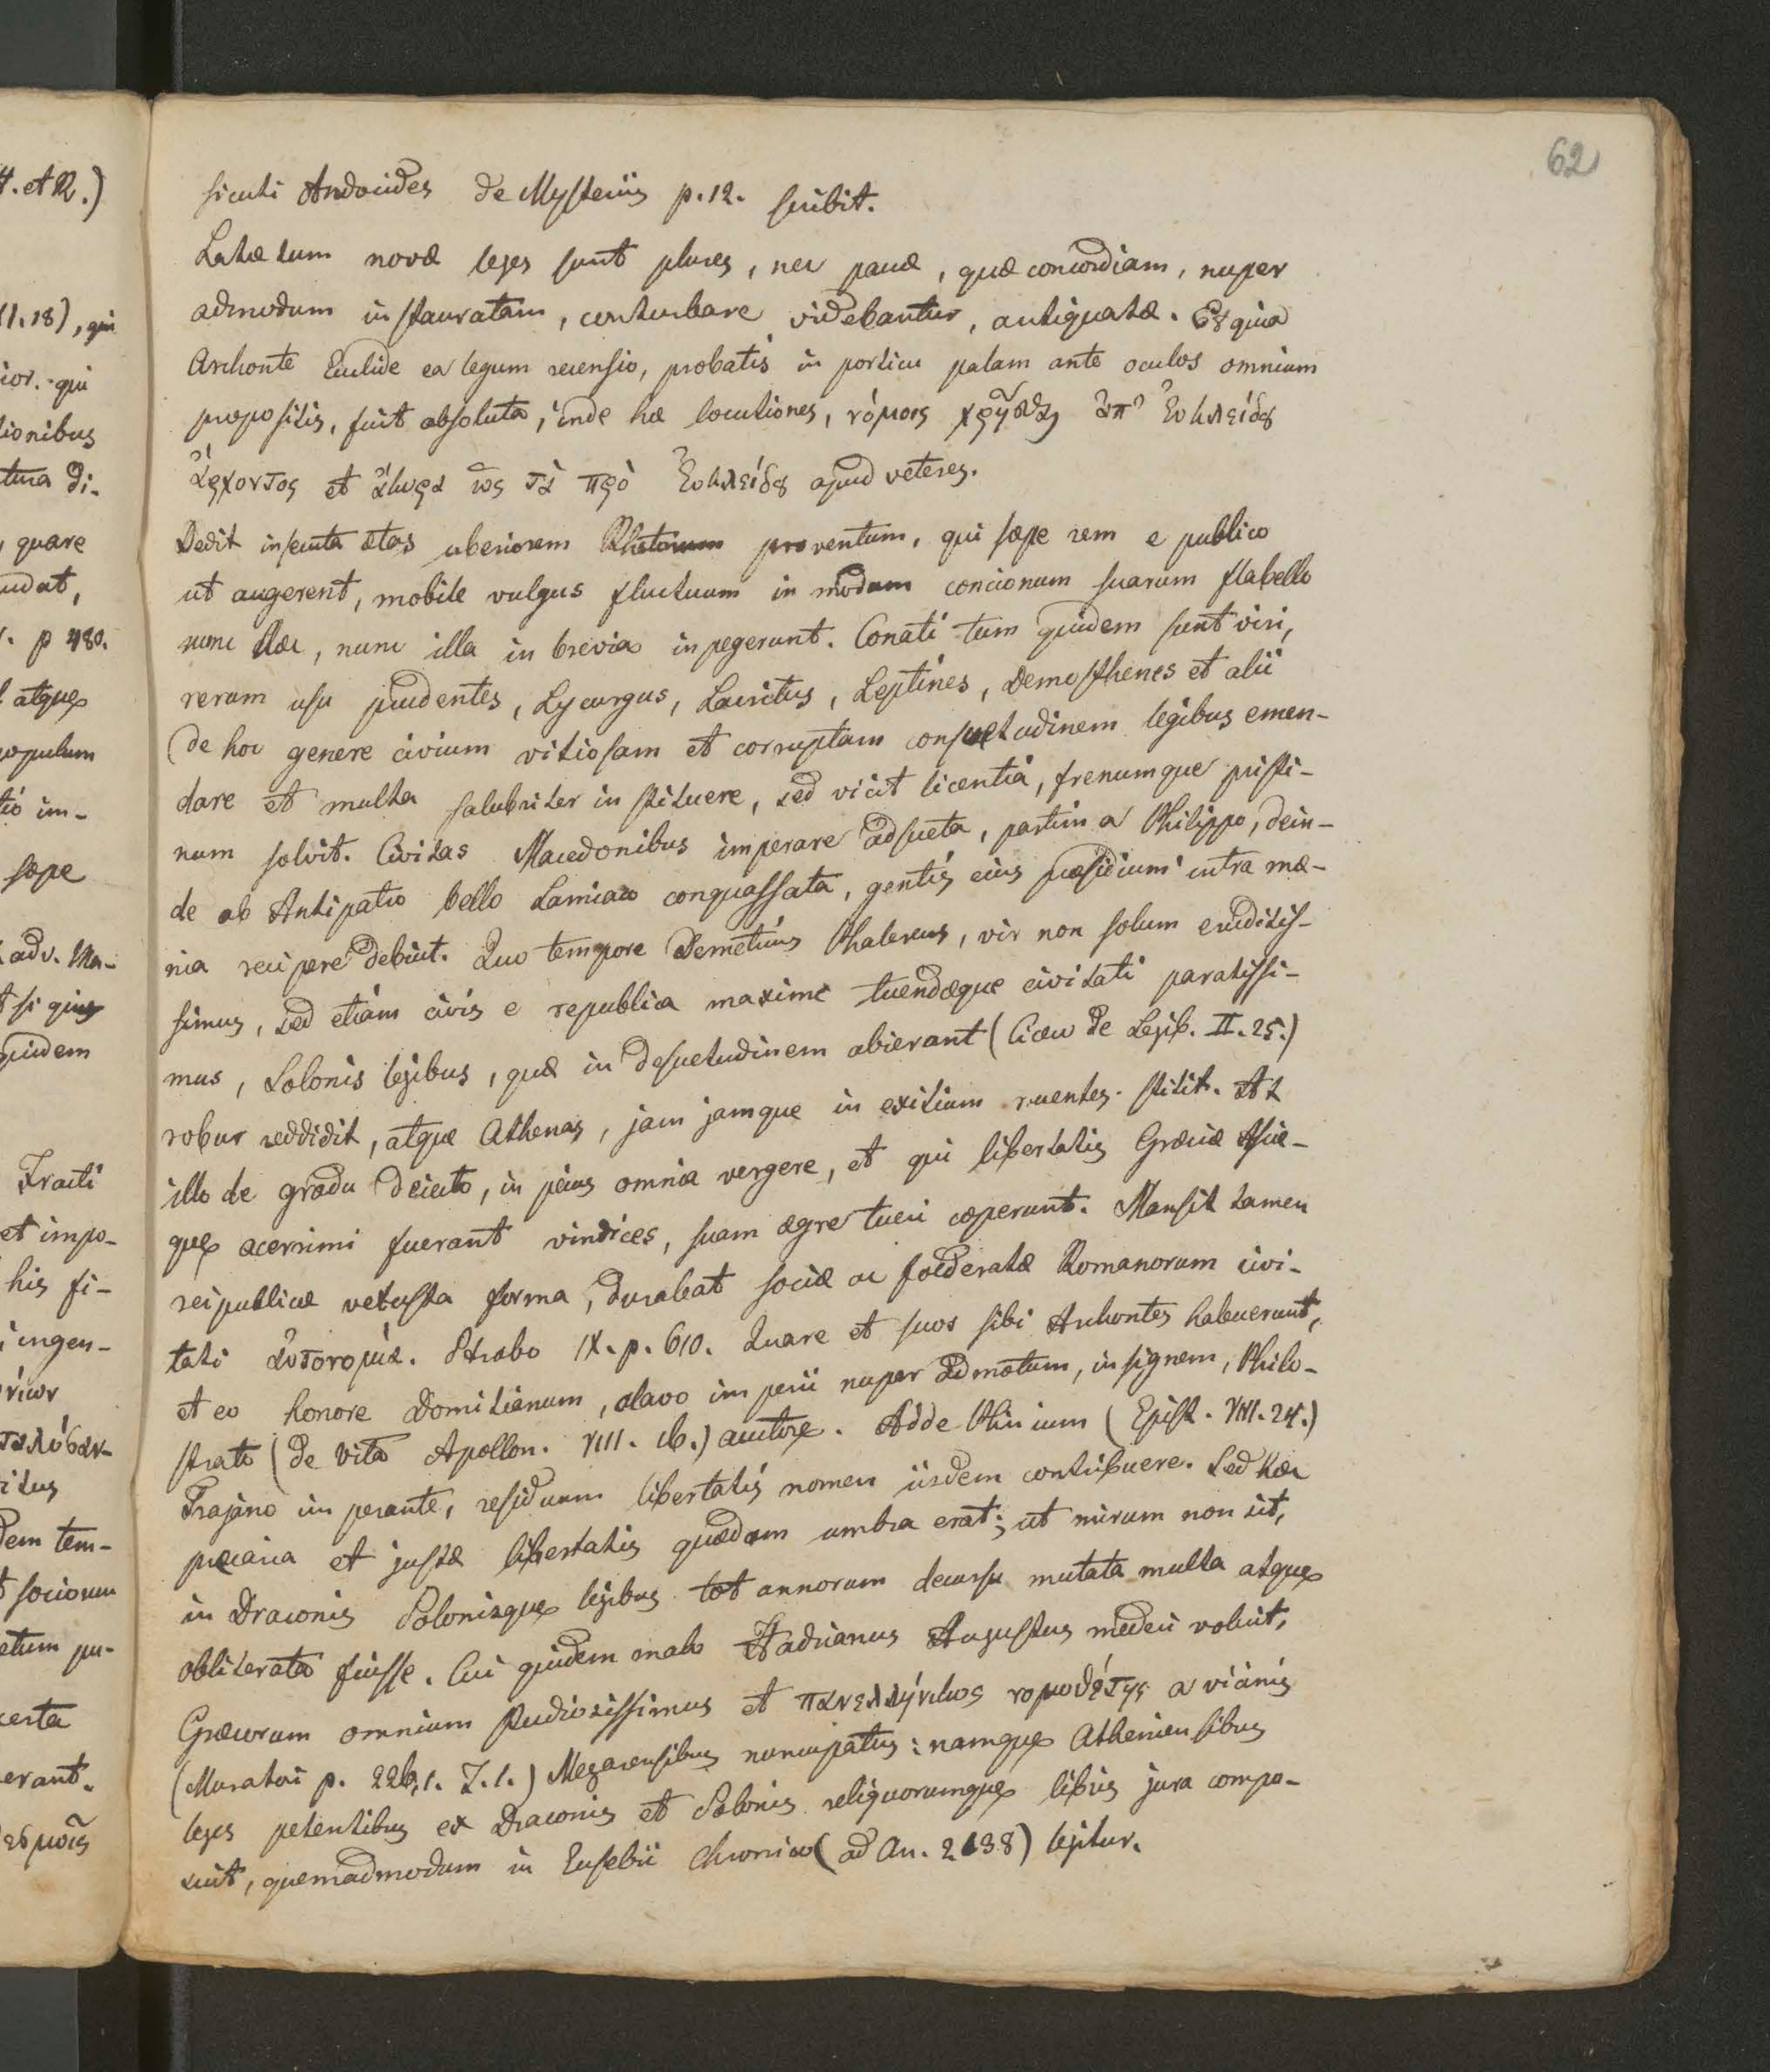 62
sicuti Andocides de Mysteriis p. 12. scribit.
Latæ tum novæ leges sunt plures, nec paucæ, quæ concordiam, nuper
admodum instauratam, conturbare videbantur, antiquatæ. Et quia
Archonte Euclide ea legum recensio, probatis in porticu palam ante oculos omnium
propositis, fuit absoluta, inde hæ locutiones, νόμοις χρῆσθαι ἀπ' Ευκλείδȣ
ἄρχοντος et ἄκυρα ὡς τὰ πρὸ Ευκλείδȣ apud veteres.
Dedit insecuta ætas uberiorem Rhetorum proventum, qui sæpe rem e publico
ut augerent, mobile vulgus fluctuum in modum concionum suarum flabello
nunc hæc, nunc illa in brevia inpegerunt. Conati tum quidem sunt viri,
rerum usu prudentes, Lycurgus, Lacritus, Leptines, Demosthenes et alii
de hoc genere civium vitiosam et corruptam consuetudinem legibus emen-
dare et multa salubriter instituere, sed vicit licentia, frenumque pristi-
num solvit. Civitas Macedonibus imperare adsueta, partim a Philippo, dein-
de ab Antipatro bello Lamiaco conquassata, gentis eius præsidium intra mœ-
nia recipere debuit. Quo tempore Demetrius Phalereus, vir non solum eruditis-
simus, sed etiam civis e republica maxime tuendæque civitati paratissi-
mus, Solonis legibus, quæ in desuetudinem abierant (Cicero de Legib. II. 25.)
robur reddidit, atque Athenas, jam jamque in exitium ruentes stitit. At
illo de gradu deiecto, in peius omnia vergere, et qui libertatis Græciæ Asiæ-
que acerrimi fuerant vindices, suam ægre tueri cœperunt. Mansit tamen
reipublicæ vetusta forma, durabat sociæ ac foederatæ Romanorum civi-
tati αὐτονομία. Strabo IX. p. 610. Quare et suos sibi Archontes habuerunt,
et eo honore Domitianum, clavo imperii nuper admotum, insignem, Philo-
strato (de Vita Apollon. VIII. 16.) auctore. Adde Plinium (Epist. VIII. 24.)
Trajano imperante, residuum libertatis nomen iisdem contribuere. Sed hæc
precaria et justæ libertatis quædam umbra erat; ut mirum non sit,
in Draconis Solonisque legibus tot annorum decursu mutata multa atque
obliterata fuisse. Cui quidem malo Hadrianus Augustus mederi voluit,
Græcorum omnium studiosissimus et πανελλήνικος νομοθέτης a vicinis
(Muratori p. 226,1. Z. 1.) Megarensibus nuncupatus: namque Atheniensibus
leges petentibus ex Draconis et Solonis reliquorumque libris jura compo-
suit, quemadmodum in Eusebii Chronico (ad An. 2138) legitur.